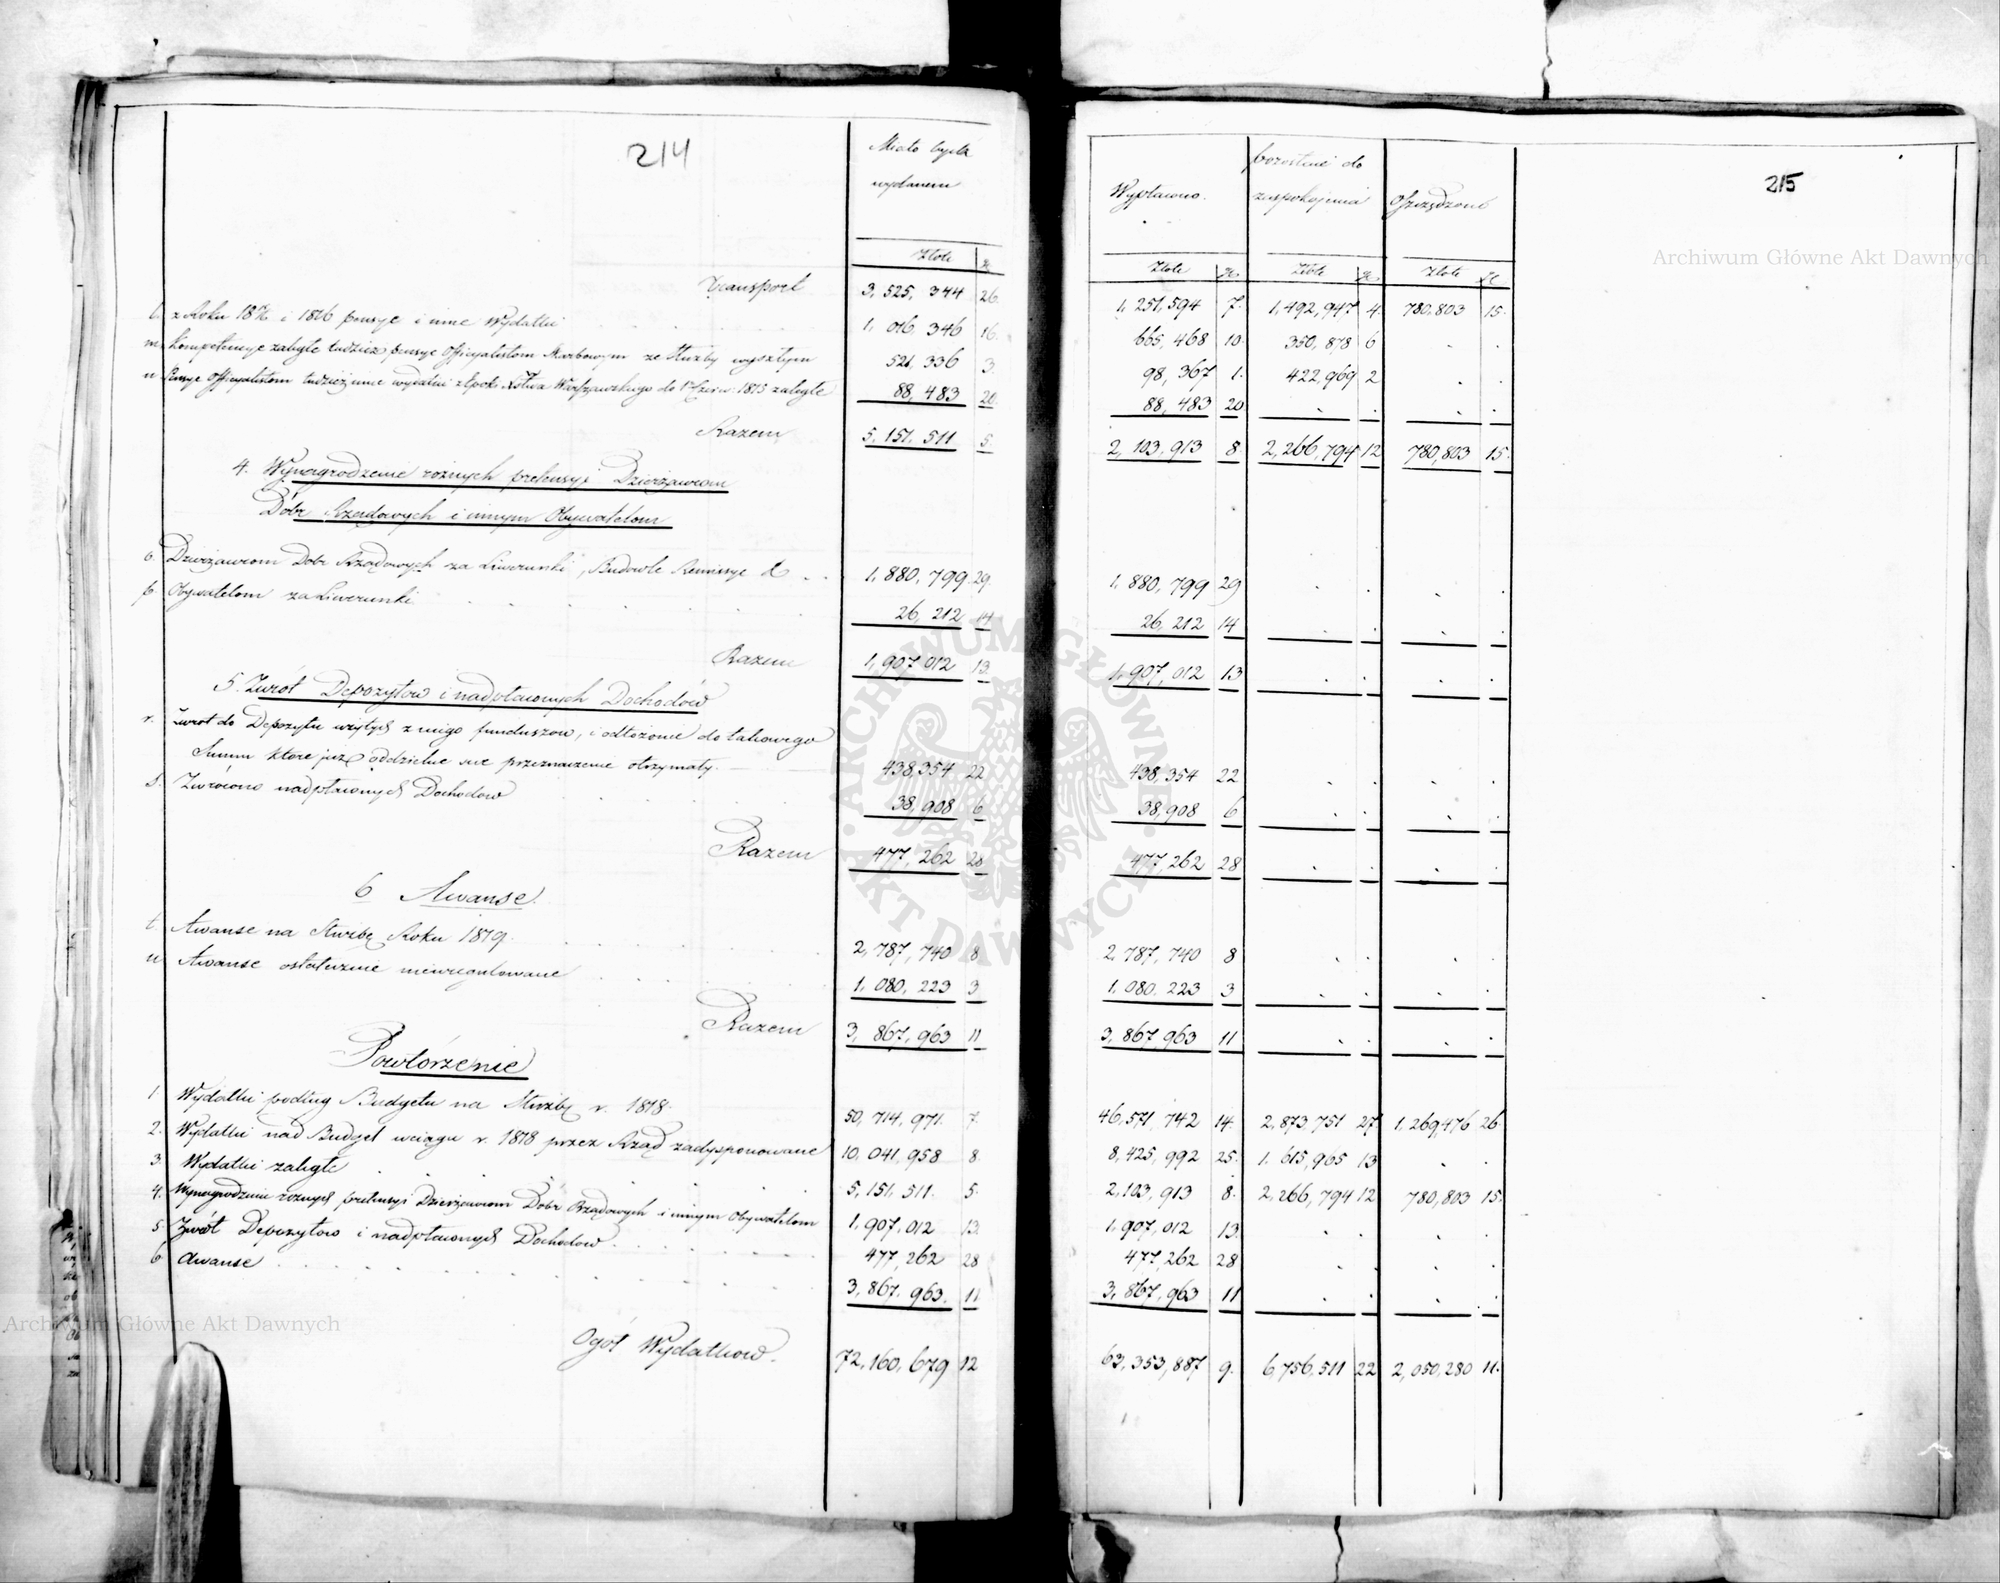 214
Miało bydź
wydanem
Złote gr
Transport 3,525,344 26
l. z Roku 18 15/16 i 1816 pensye i inne Wydatki 1,016,346 16
m. Kompetencye zaległe tudzież pensye Officyalistom Skarbowym ze Służby wyszłym 521,336 3
n Pensye Officyalistom tudzież inne wydatki z Epoki Xstwa Warszawskiego do 1 Czerw: 1815 zaległe 88,483 20
Razem 5,151,511 5
4. Wynagrodzenie rożnych pretensyi Dzierżawcom
Dóbr Rządowych i innym Obywatelom
o. Dzierżawcom Dobr Rządowych za Liwerunki, Budowle Remissye & 1,880,799 29
p. Obywatelom za Liwerunki 26,212 14
Razem 1,907,012 13
5. Zwrót Depozytow i nadpłaconych Dochodów
r. Zwrot do Depozytu wziętych z niego funduszow, i odłożone do takowego
Summ które już oddzielne swe przeznaczenie otrzymały. 438,354 22
s. Zwrócono nadpłaconych Dochodow 38,908 6
Razem 477,262 28
6 Awanse.
t. Awanse na Służbę Roku 1819. 2,787,740 8
u Awanse ostatecznie nieuregulowane 1,080,223 3
Razem 3,867,963 11
Powtórzenie
1. Wydatki podług Budgetu na Służbę r. 1818. 50,714,971. 7
2. Wydatki nad Budget wciągu r. 1818 przez Rząd zadysponowane 10,041,958 8
3. Wydatki zaległe 5,151,511. 5
4. Wynagrodzenie rożnych pretensyi Dzierżawcom Dobr Rządowych i innym Obywatelom 1,907,012 13
5 Zwrót Depozytow i nadpłaconych Dochodow 477,262 28
6 Awanse 3,867,963. 11
Ogół Wydatkow. 72,160,679 12
215
Wypłacono. pozostaie do zaspokojenia Oszczędzono
Złote gr. Złote gr. Złote gr
1,251,594 7. 1,492,947 4. 780,803 15.
665,468 10. 350,878 6
98,367 1. 422,969 2
88,483 20
2,103,913 8. 2,266,794 12 780,803 15.
1,880,799 29
26,212 14
1,907,012 13
438,354 22
38,908 6
477,262 28
2,787,740 8
1,080,223 3
3,867,963 11
46,571,742 14. 2,873,751 27. 1,269,476 26.
8,425,992 25. 1,615,965 13
2,103,913 8. 2,266,794 12 780,803 15.
1,907,012 13.
477,262 28
3,867,963 11
63,353,887 9. 6,756,511 22 2,050,280 11.
Archiwum Główne Akt Dawnych
Archiwum Główne Akt Dawnych
ARCHIWUM GŁÓWNE AKT DAWNYCH